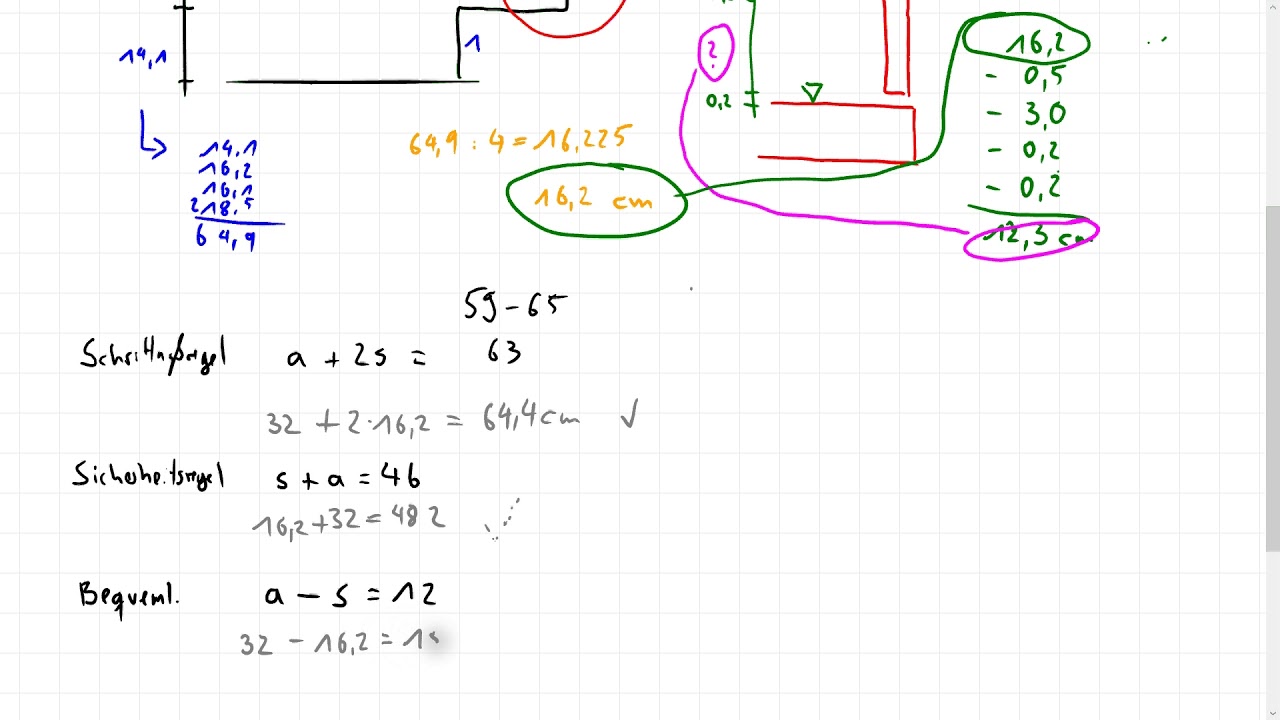 14,1
1
?
0,2
16,2
- 0,5
- 3,0
- 0,2
- 0,2
12,3 cm
14,1
16,2
16,1
218,5
64,9
64,9 : 4 = 16,225
16,2 cm
59 - 65
Schrittmaßregel a + 2s = 63
32 + 2 · 16,2 = 64,4 cm ✓
Sicherheitsregel s + a = 46
16,2 + 32 = 48 2
Bequeml. a - s = 12
32 - 16,2 = 1